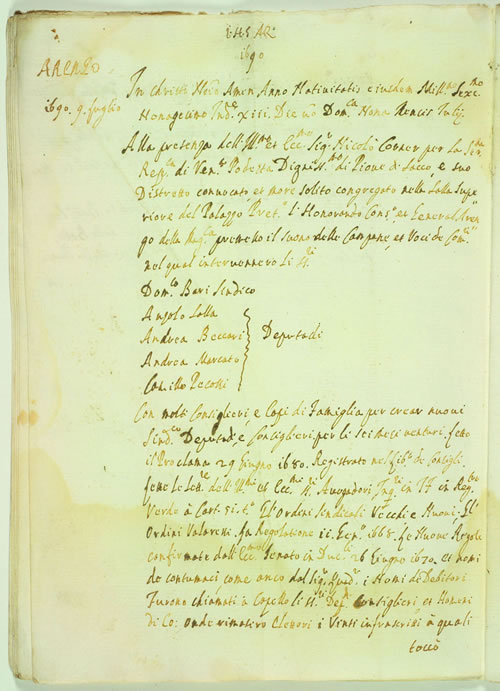 1690
ARENGO
1690. 9. Luglio
In Christi Noĩe Amen Anno Nativitatis eiusdem Mill.mo Sexc.mo
Nonagesimo Ind.ne XIII. Die vò Dom.ca Nona Mensis Julij
Alla presenza dell' Ill.mo et Ecc.mo Sig.r Nicolò Corner per La Ser.ma
Rep.ca di Ven.a Podestà Digniss.mo di Piove di Sacco, e suo
Distretto convocato, et more solito congregato nella Salla Supe
riore del Palazzo Pret.o l'Honorando Cons.o et General Aren
go della Mag.ca premesso il suono delle Campane, et Voci de Com.ri
nel qual intervennero li ss.ti
Dom.co Bari Sindico
Angolo Salla
Andrea Beccari
Deputadi
Andrea Marcato
Camillo Pecossi
Con molti Consiglieri, e Capi di Famiglia per crear nuovi
Sind.co Deputadi, e Consiglieri per li sei mesi venturi. Letto
il Proclama 29 Giugno 1680. Registrato nel lib.o de Consigli
Lette le Lett.e dell' Ill.mi et Ecc.mi SS. Avogadori in Reg.ro
Verde à Cart. 51. Gl' Ordini Sindicali Vecchi e Nuovi, Gl'
Ordini Valaressi. La Regolatione 11. Gen.o 1668. Le Nuove Regole
confirmate dall' Ecc.mo Senato in 26 Giugno 1670. et nomi
de contumaci come anco dal Sig.r i Nomi de Debitori
Furono chiamati à Capello li ss.ti Dep.ti Consiglieri, et Homeni
di Co: onde rimasero Elettori i Vinti infrascritti à quali
toccò